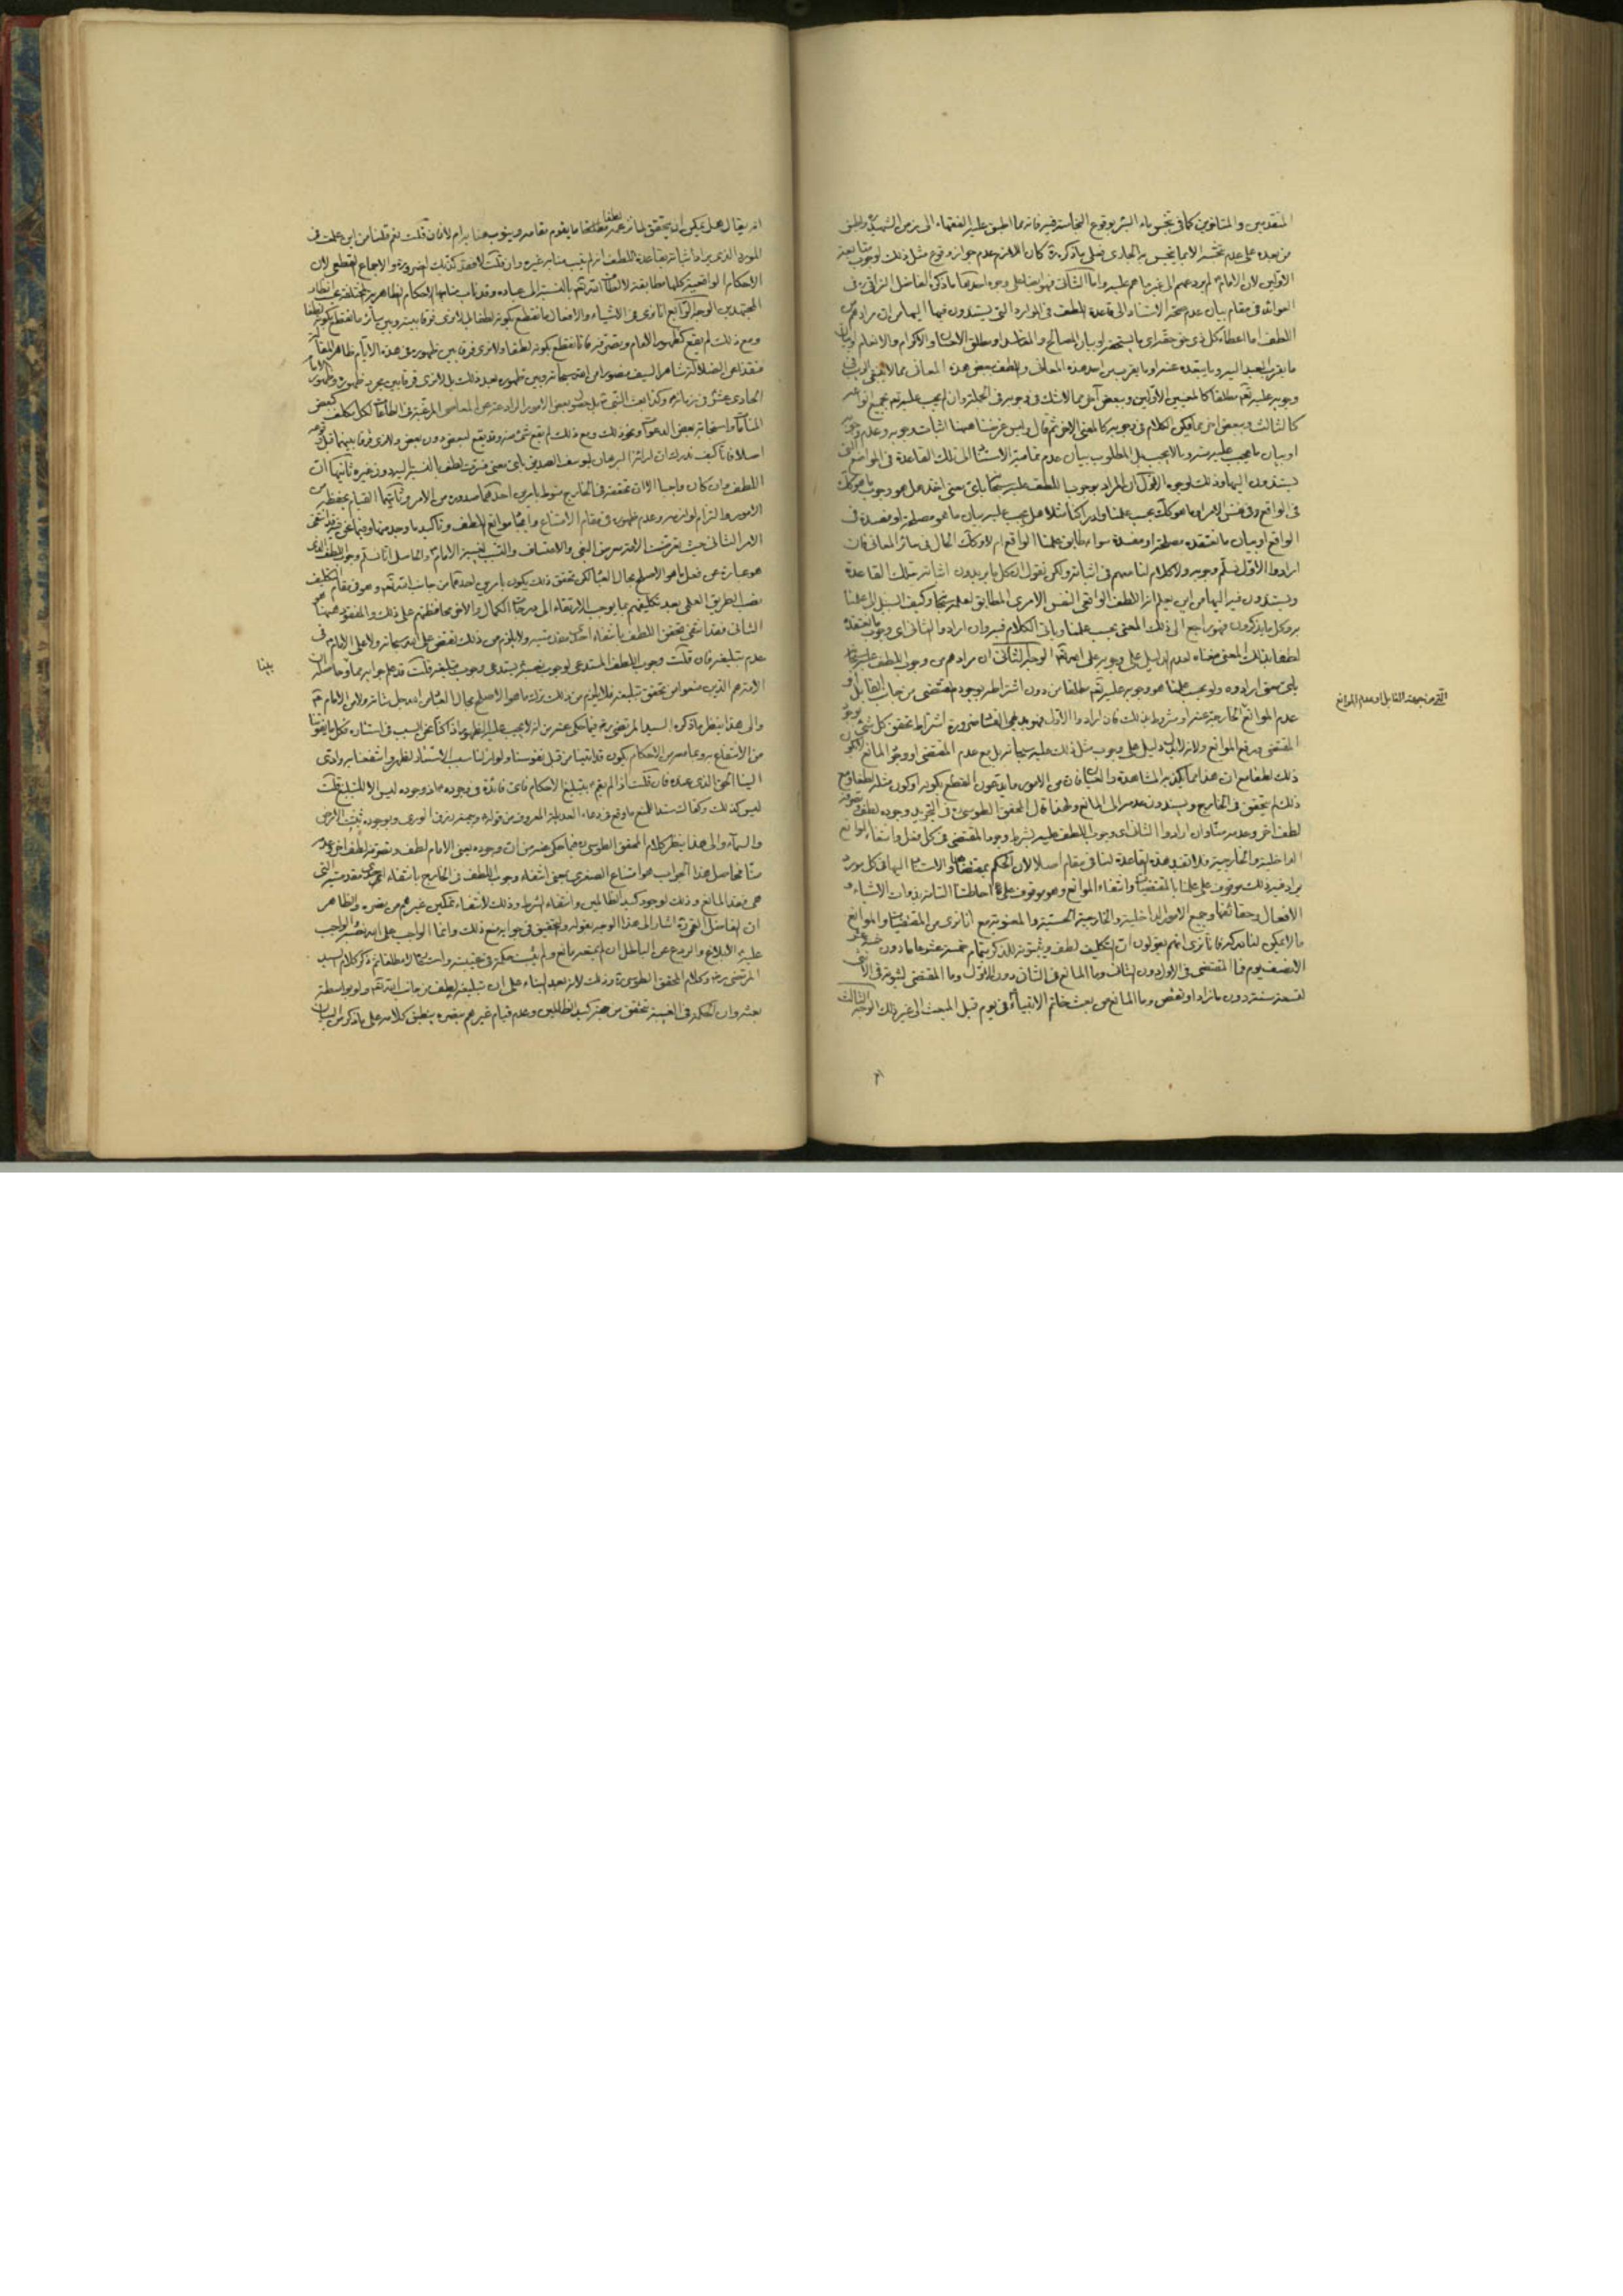 المتقدمين والمتأخرين كما في نجس ماء البئر بوقوع النجاسة فيه فانه مما اطبق عليه الفقهاء الى زمن الشهيد واطبق
من بعده على عدم نجسه الا بما ينجس به الجاري فعلى ما ذكره كان اللازم عدم جواز وقوع مثل ذلك لوجوب متابعة
الاولين لان الامام لم يردعهم الى غير ما هم عليه واما الثاني فهو ايضا على وجوه احدها ما ذكره الفاضل النراقي في
العوائد في مقام بيان عدم صحة الاستناد الى قاعدة اللطف في الموارد التي يستندون فيها اليها من ان مرادهم من
اللطف اما اعطاء كل ذي حق حقه اي ما يستحقه او بيان المصالح والمفاسد او مطلق الاحسان والاكرام والانعام او بيان
ما يقرب العبد اليه وما يبعده عنه او ما يقرب من احد هذه المعاني واللطف ببعض هذه المعاني مما لا ينبغي الريب في
وجوبه عليه تعالى مطلقا كالمعنيين الاولين وببعض آخر مما لا شك في وجوبه في الجملة وان لم يجب عليه تعالى بجميع انواعه
كالثالث وببعض اخر مما يمكن الكلام في وجوبه كالمعنى الاخر ثم قال وليس غرضنا ههنا اثبات وجوبه وعدم وجوبه
او بيان ما يجب عليه منه وما لا يجب بل المطلوب بيان عدم تمامية الاستناد الى تلك القاعدة في المواضع التي
يستندون اليها وذلك لوجوه الاول ان المراد بوجوب اللطف عليه سبحانه باي معنى اخذ هل هو وجوب ما هو كذلك
في الواقع وفي نفس الامر او ما هو كذلك بحسب علمنا وادراكنا مثلا هل يجب عليه بيان ما هو مصلحة او مفسدة في
الواقع او بيان ما نعتقده مصلحة او مفسدة سواء طابق علمنا الواقع ام لا وكذلك الحال في سائر المعاني فان
ارادوا الاول فنسلم وجوبه ولا كلام لنا معهم في اثباته ولكن نقول ان كل ما يريدون اثباته بتلك القاعدة
ويستندون فيه اليها من اين يعلم انه اللطف الواقعي النفس الامري المطابق لعلمه سبحانه وكيف السبيل الى علمنا
به وكل ما يذكرون فهو راجع الى ذلك المعنى بحسب علمنا وياتي الكلام فيه وان ارادوا الثاني اي وجوب ما نعتقده
لطفا بذلك المعنى منعناه لعدم الدليل على وجوبه على الله تعالى الوجه الثاني ان مرادهم من وجوب اللطف عليه سبحانه
باي معنى ارادوه ولو بحسب علمنا هو وجوبه عليه تعالى مطلقا من دون اشتراطه بوجود المقتضي من جانب القابل او
عدم الموانع الخارجية عنه او مشروط بذلك فان ارادوا الاول فهو بديهي الفساد ضرورة اشتراط تحقق كل شيء بوجود
المقتضي ورفع الموانع ولانه لا دليل على وجوب مثل ذلك عليه سبحانه بل مع عدم المقتضي او وجود المانع لا يكون
ذلك لطفا مع ان هذا مما يكذبه المشاهدة والعيان فان من الامور ما يدعون القطع بكونه او كون مثله لطفا ومع
ذلك لم يتحقق في الخارج ويسندون عدمه الى المانع ولهذا قال المحقق الطوسي في التجريد وجوده لطف وتصرفه
لطف آخر وعدمه منا وان ارادوا الثاني اي وجوب اللطف عليه بشرط وجود المقتضي في كل فعل وانتفاء الموانع
الداخلية والخارجية فلا تفيد هذه القاعدة لنا في مقام اصلا لان الحكم بمقتضاها والاستناد اليها في كل مورد
يراد فيه ذلك موقوف على علمنا بالمقتضيات وانتفاء الموانع وهو موقوف على احاطتنا التامة بذوات الاشياء و
الافعال وحقائقها وجميع الامور الداخلية والخارجية الحسية والمعنوية مع انا نرى من المقتضيات والموانع
ما لا يمكن لنا دركه فانا نرى انهم يقولون ان التكليف لطف وثبوته للذكر بتمام خمسة عشر عاما دون خمسة عشر
الا نصف يوم فما المقتضي في الاول دون الثاني وما المانع في الثاني دون الاول وما المقتضي لثبوته في الانثى
لتسعة سنة دون ما زاد او نقص وما المانع من بعث خاتم الانبياء في يوم قبل المبعث الى غير ذلك الوجه الثالث
من جهة القابل او عدم الموانع
انه يقال هل يمكن ان يتحقق لما نزعمه لطفا ما يقوم مقامه وينوب منابه ام لا فان قلت نعم قلنا من اين علمت في
المورد الذي يراد اثباته بقاعدة اللطف انه لم ينب منابه غيره وان قلت لا فقد كذبت الضرورة والاجماع القطعي لان
الاحكام الواقعية كلها مطابقة لالطاف الله تعالى بالنسبة الى عباده وقد ناب منابها الاحكام الظاهرية المختلفة بحسب انظار
المجتهدين الوجه الرابع انا نرى من الاشياء والافعال ما نقطع بكونه لطفا بل لا نرى فرقا بينه وبين سائر ما نقطع بكونه لطفا
ومع ذلك لم يقع كظهور الامام وتصرفه فانا نقطع بكونه لطفا ولا نرى فرقا بين ظهوره في هذه الايام ظاهرا
منقذا من الضلالة شاهرا لسيف منصورا من الله سبحانه وبين ظهوره بعد ذلك بل لا نرى فرقا بين مجرد ظهوره وظهور الامام
الحادي عشر في زمانه وكذا بعث النبي قبل وبعض الامور الرادعة عن المعاصي المرغبة في الطاعات لكل مكلف كبعض
المنامات واستجابة بعض الدعوات ونحو ذلك ومع ذلك لم يقع شيء منه وقد يقع لبعض دون بعض ولا نرى فرقا بينهما
اصلا فانا كيف ندرك ان اراءة البرهان ليوسف الصديق باي معنى فسرت لطف بالنسبة اليه دون غيره ثانيها ان
اللطف وان كان واجبا الا ان تحققه في الخارج منوط بامرين احدهما صدوره من الامر وثانيهما القيام بحفظه من
المامور والتزام لوازمه وعدم ظهوره في مقام الامتناع وايجاد موانع اللطف وتاكيد ما وجد منها وفيما نحن فيه قد انتفى
الامر الثاني حيث
هو عبارة عن فعل ما هو الاصلح بحال العباد لكن تحقق ذلك يكون بامرين احدهما من جانب الله تعالى وهو في مقام التكليف
نصب الطريق العلمي بعد تكليفهم بما يوجب الارتقاء الى درجات الكمال والاخر محافظتهم على ذلك والمفقود ههنا هو
الثاني فقد انتفى تحقق اللطف بانتفاء احدى مقدمتيه ولا يلزم من ذلك نقض على الله سبحانه ولا على الامام في
عدم تبليغه فان قلت وجوب اللطف المستدعي لوجوب نصبه يستدعي وجوب تبليغه قلت قد علم جوابه مما
الامة هم الذين منعوا من تحقق تبليغه فلا يلزم من ذلك ترك ما هو الاصلح بحال العباد من الله جل شانه ولا من الامام
والى هذا ينظر ما ذكره السيد المرتضى ره فيما حكي عنه من انه لا يجب عليه الظهور اذا كنا نحن السبب في استتاره فكل ما يفوتنا
من الانتفاع به وبما معه من الاحكام يكون قد اتينا من قبل نفوسنا ولو ازلنا سبب الاستتار لظهر وانتفعنا به وادى
الينا الحق الذي عنده فان قلت اذا لم يقم بتبليغ الاحكام فاي فائدة في وجوده اذ وجوده ليس الا للتبليغ قلت
ليس كذلك وكفاك سندا للمنع ما وقع في دعاء العديلة المعروف من قوله وبيمنه رزق الورى وبوجوده ثبتت الارض
والسماء والى هذا ينظر كلام المحقق الطوسي ره فيما حكي عنه من ان وجوده يعني الامام لطف وتصرفه لطف اخر وعدمه
منا فحاصل هذا الجواب هو امتناع الصغرى يعني انتفاء وجوب اللطف في الخارج بانتفاء احدى مقدمتيه التي
هي فقد المانع وذلك لوجود كيد الظالمين وانتفاء الشرط وذلك لانتفاء تمكين غيرهم من نصره والظاهر
ان الفاضل القمي ره اشار الى هذا الوجه بقوله والتحقيق في جوابه منع ذلك وانما الواجب على الله نصبه والواجب
عليه الابلاغ والردع عن الباطل ان لم يمنعه مانع ولم يثبت حكمة في غيبته واستتاره لا مطلقا ثم ذكر كلام السيد
المرتضى ره وكلام المحقق الطوسي ره وذلك لانه بعد البناء على ان تبليغه لطف من جانب الله تعالى ولو بواسطة
بعثه وان الحكمة في الغيبة تتحقق من جهة كيد الظالمين وعدم قيام غيرهم بنصره ينطبق كلامه على ما ذكر من البيان
بينا